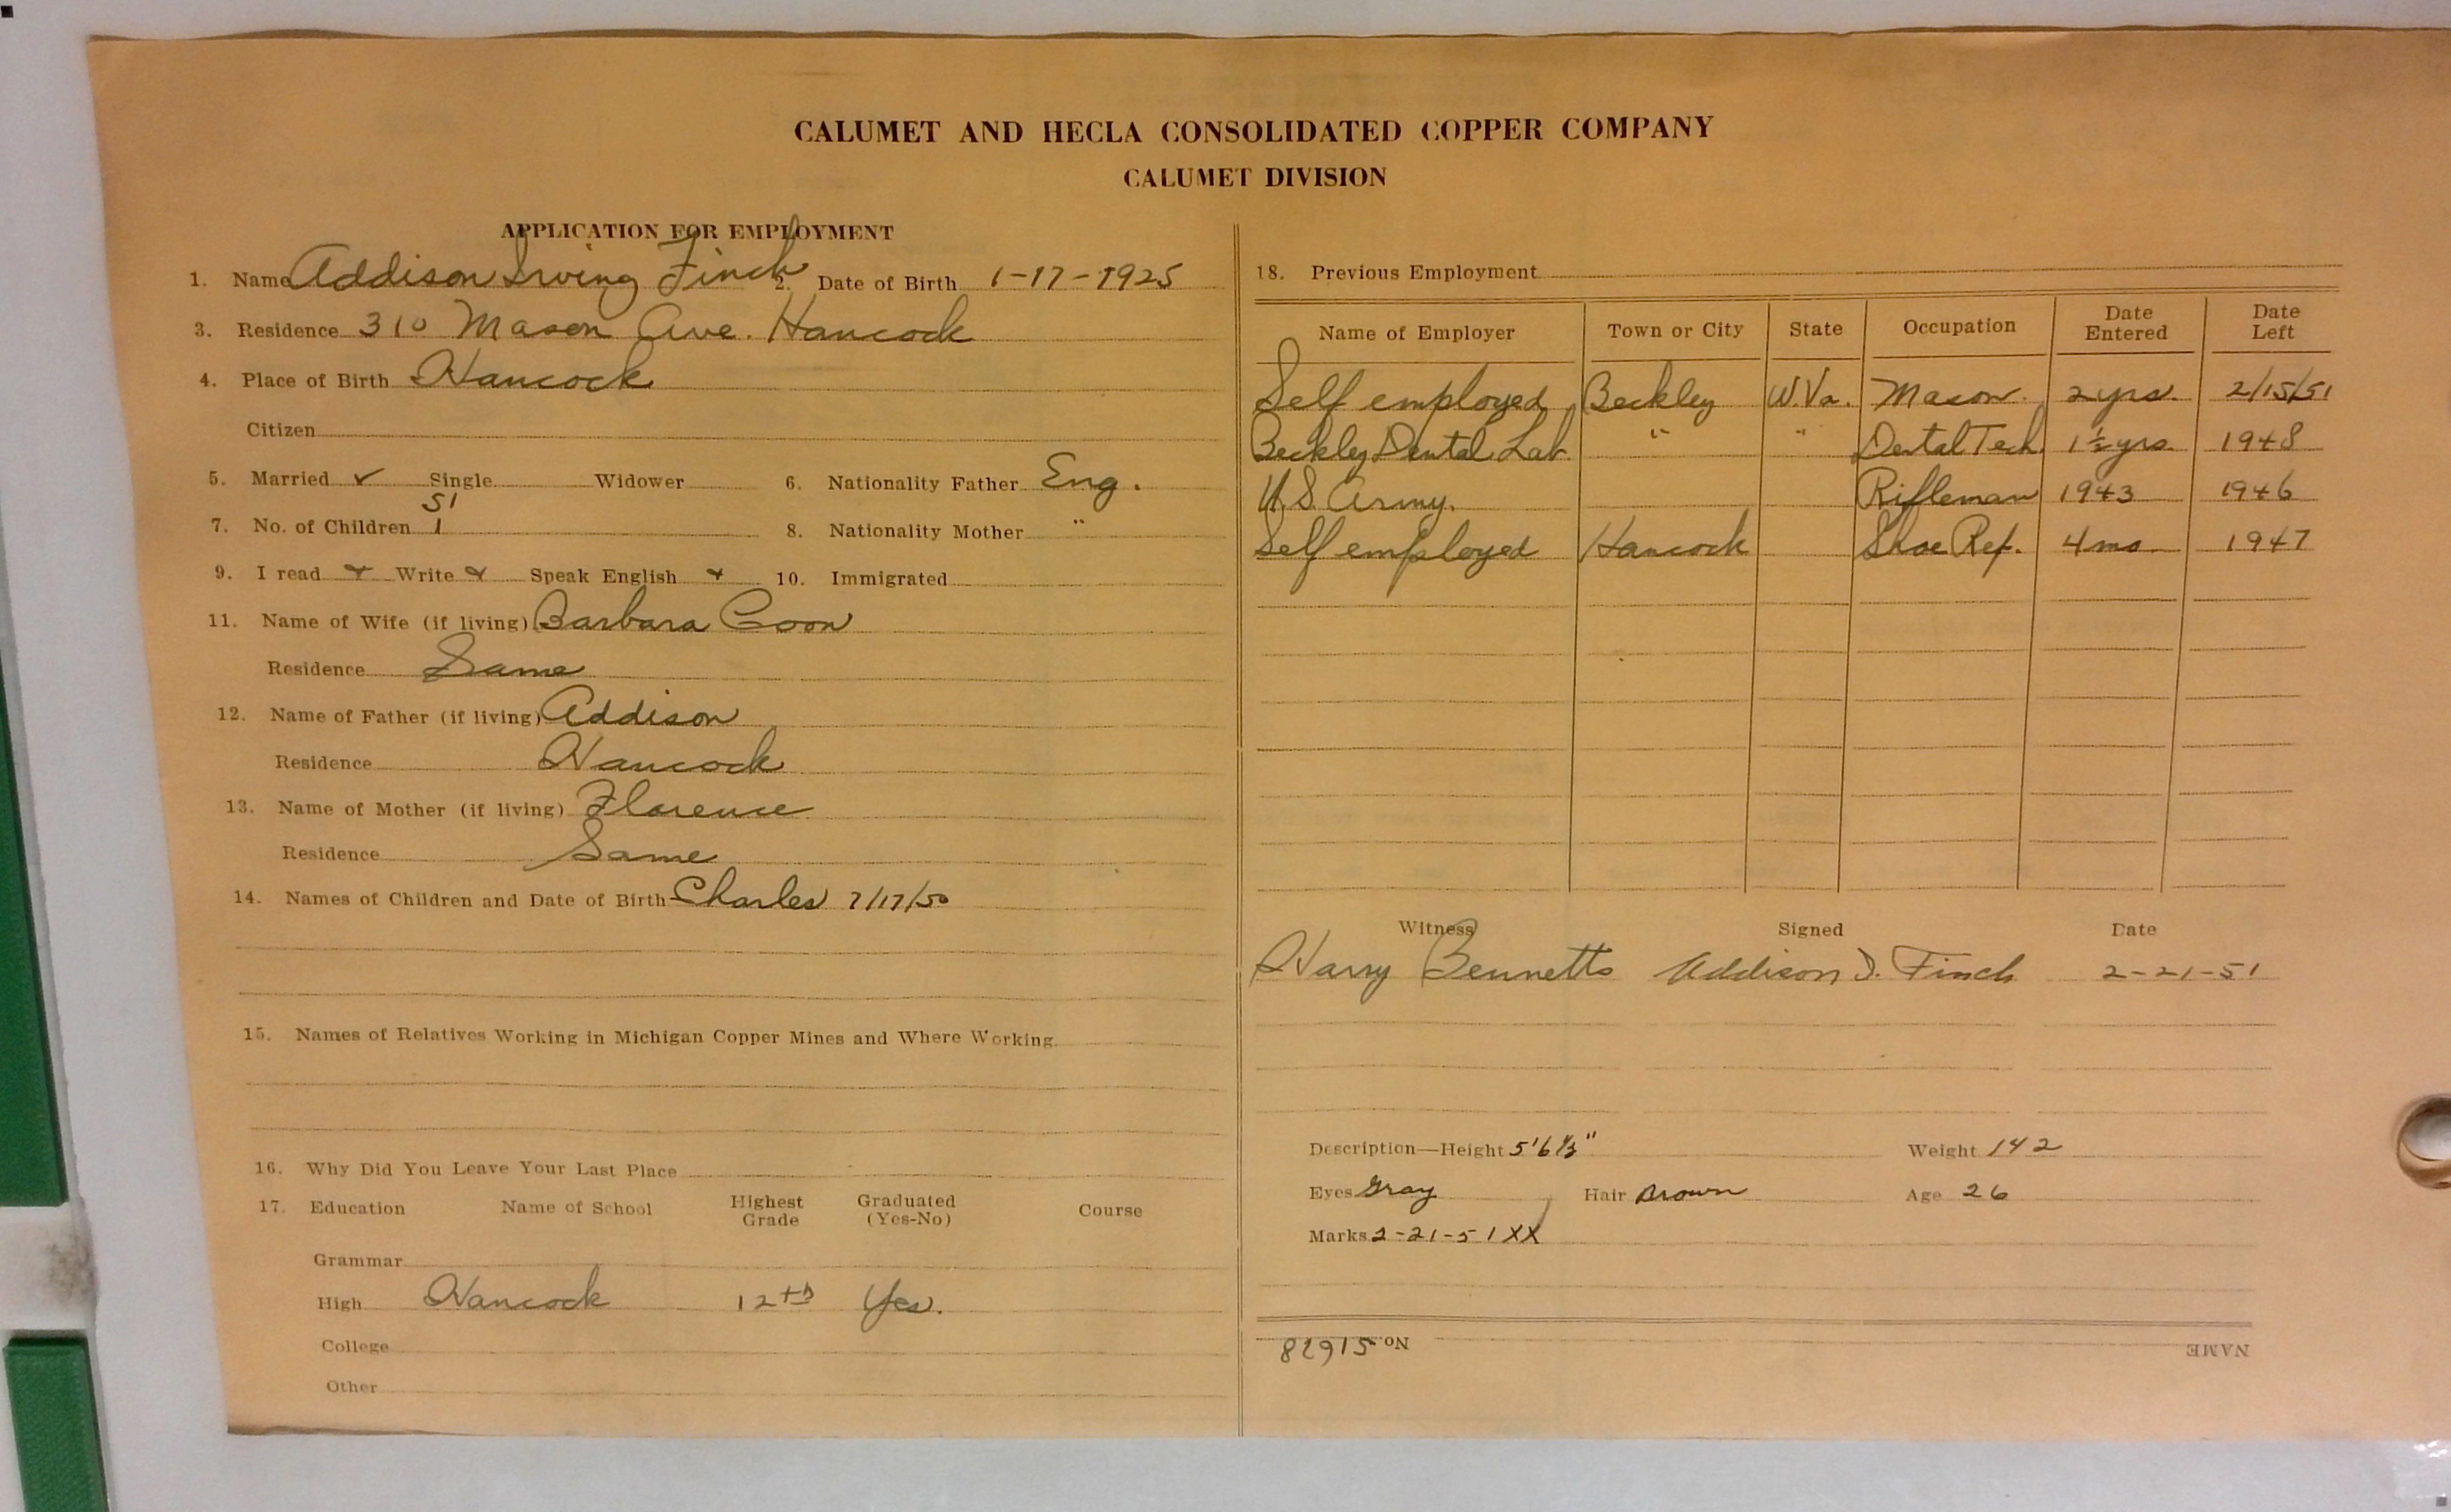 CALUMET AND HECLA CONSOLIDATED COPPER COMPANY
CALUMET DIVISION
APPLICATION FOR EMPLOYMENT
1. Name Addison Irving Finch 2. Date of Birth 1-17-1925
3. Residence 310 Mason Ave. Hancock
4. Place of Birth Hancock
Citizen
5. Married ✓ Single Widower 6. Nationality Father Eng.
51
7. No. of Children 1 8. Nationality Mother "
9. I read Write Speak English 10. Immigrated
11. Name of Wife (if living) Barbara Coon
Residence Same
12. Name of Father (if living) Addison
Residence Hancock
13. Name of Mother (if living) Florence
Residence Same
14. Names of Children and Date of Birth Charles 7/17/50
15. Names of Relatives Working in Michigan Copper Mines and Where Working
16. Why Did You Leave Your Last Place
17. Education Name of School Highest Grade Graduated (Yes-No) Course
Grammar
High Hancock 12th Yes.
College
Other
18. Previous Employment
Name of Employer Town or City State Occupation Date Entered Date Left
Self employed Beckley W.Va. Mason. 2 yrs. 2/15/51
Beckley Dental Lab " " Dental Tech. 1½ yrs. 1948
U.S. Army. Rifleman 1943 1946
Self employed Hancock Shoe Rep. 4 mo 1947
Witness Signed Date
Harry Bennetts Addison I. Finch 2-21-51
Description—Height 5'6½" Weight 142
Eyes Gray Hair Brown Age 26
Marks 2-21-51 XX
82915 No.
NAME